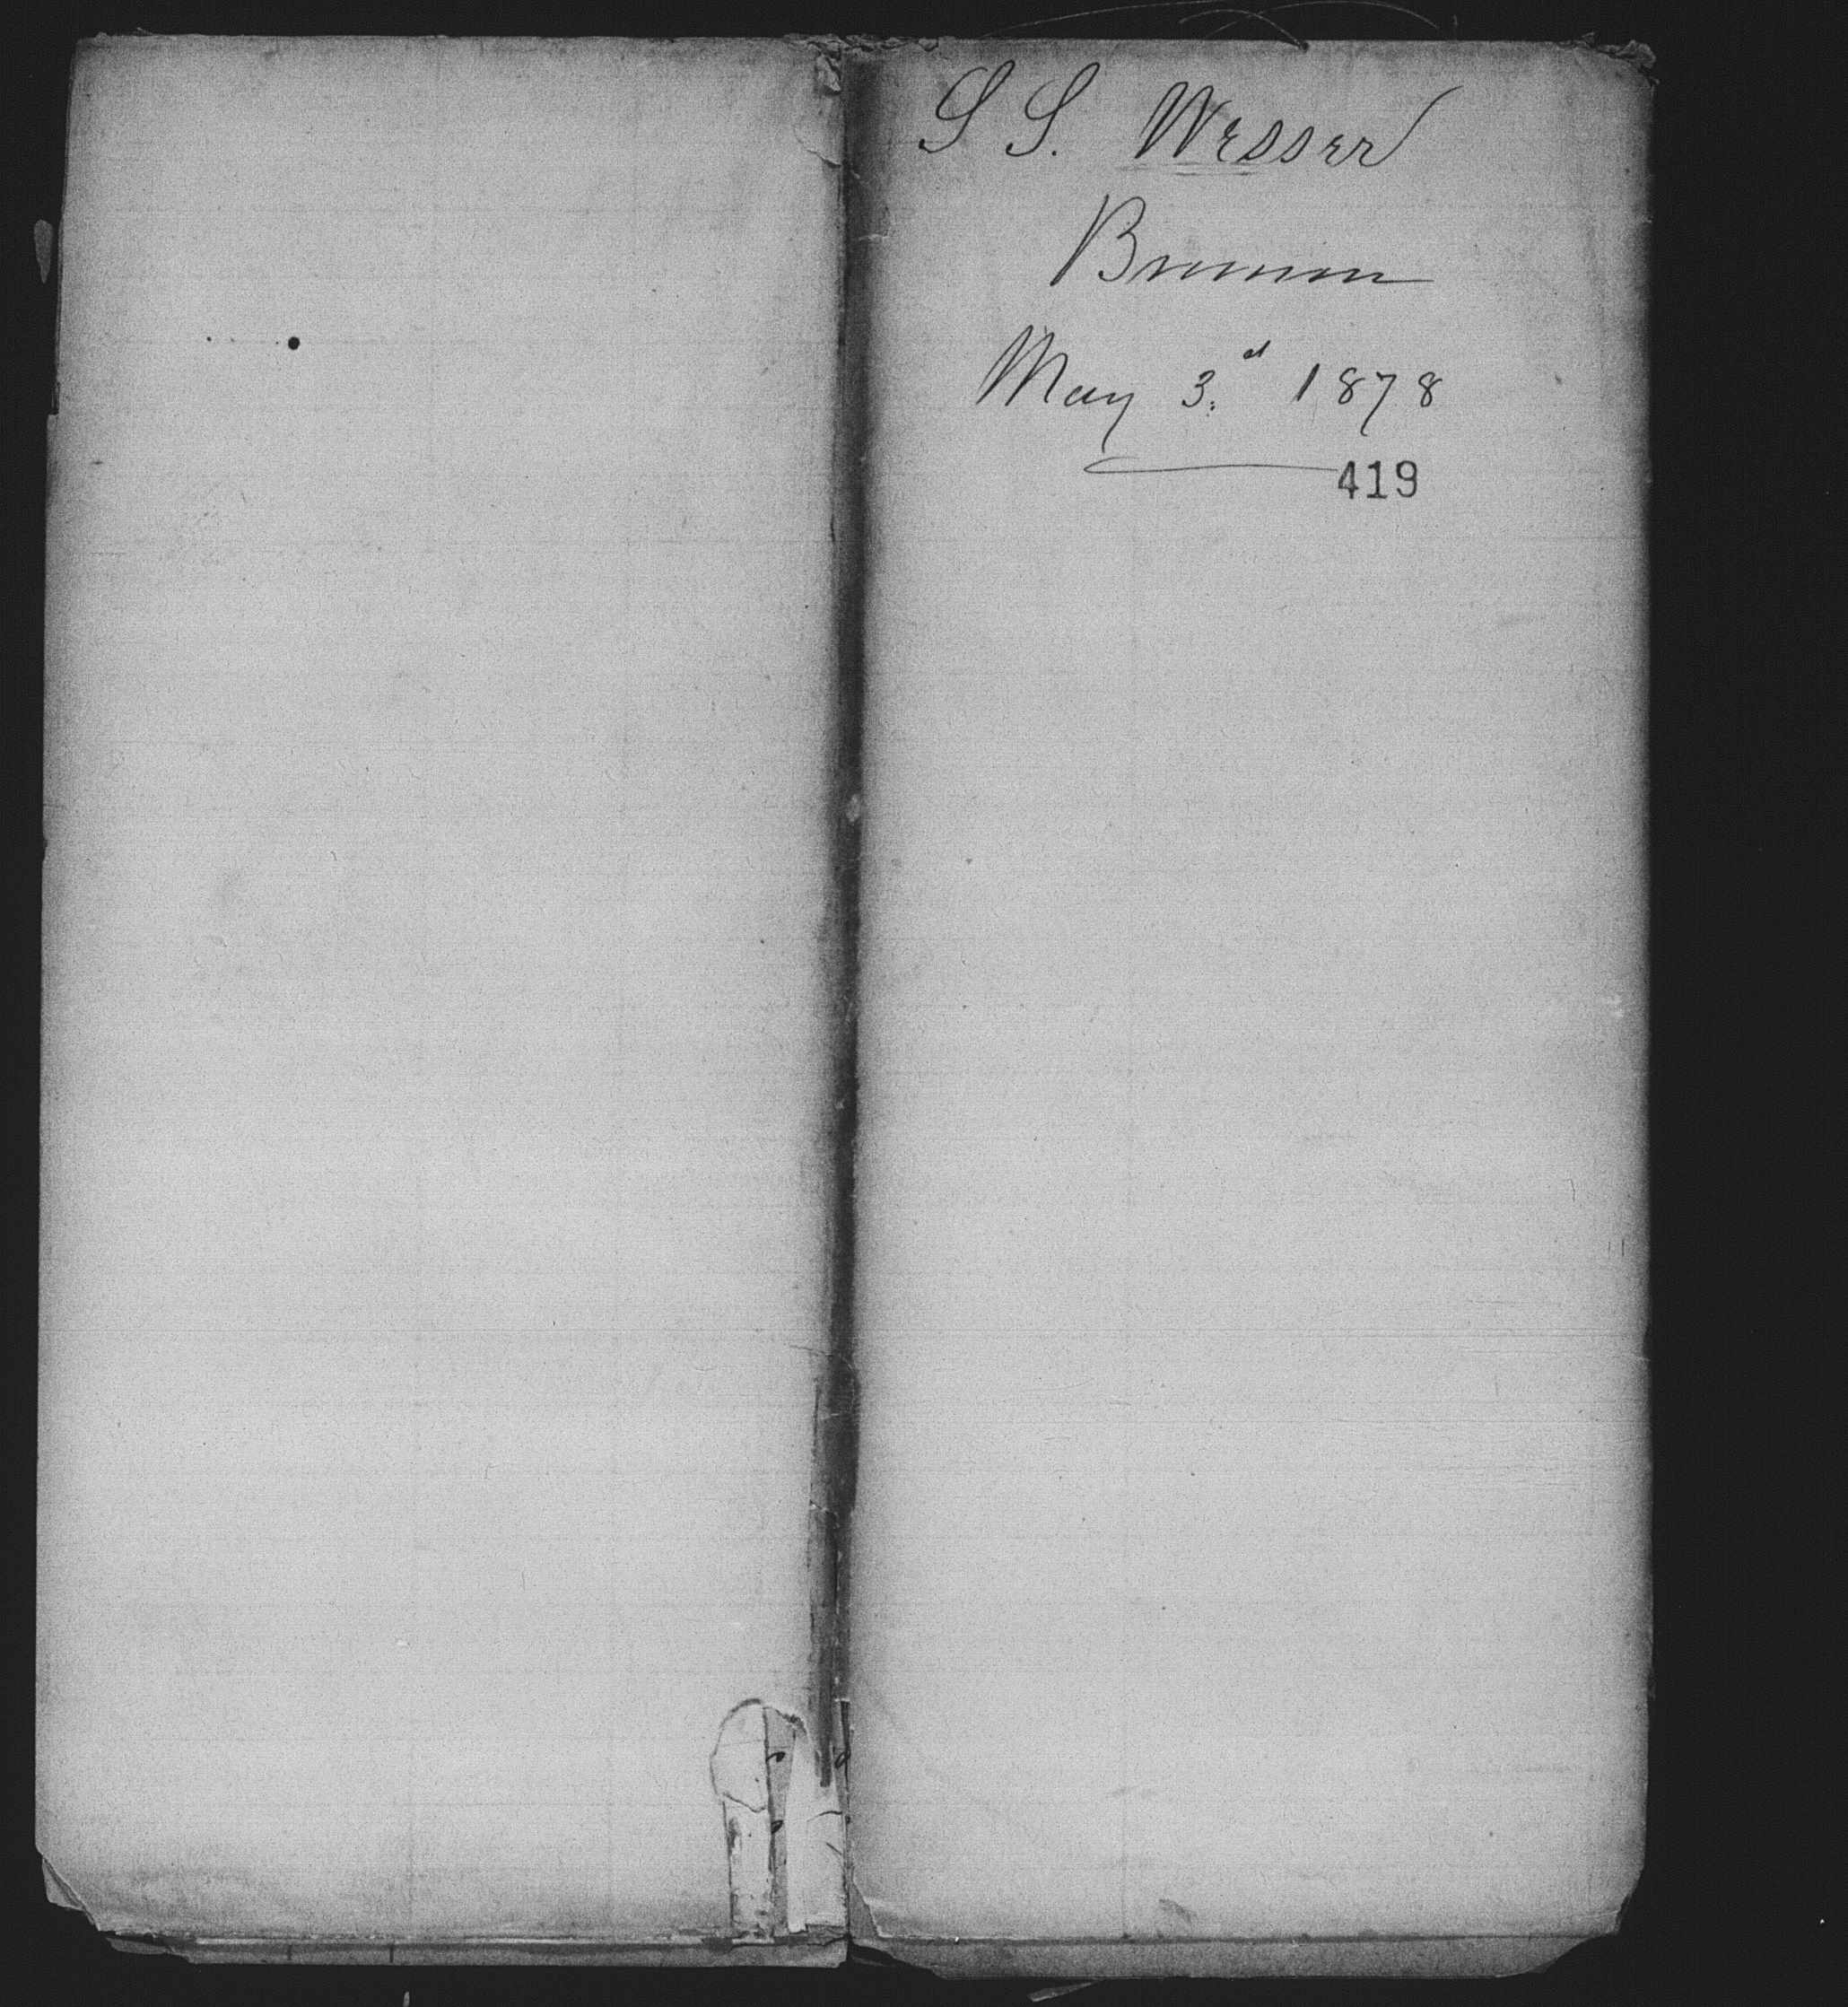 S S. Wesser
Bremen
May 3.d 1878
419